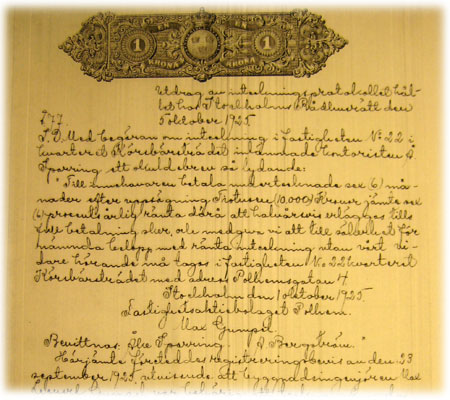 1 KRONA 1 KRONA
Utdrag av inteckningsprotokollet hål-
let hos Stockholms Rådhusrätt den
§ 77. 5 oktober 1925
S.D. Med begäran om inteckning i fastigheten N:o 22 i
kvarteret Körsbärsträdet inlämnade kontoristen Å.
Sporring ett skuldebrev så lydande:
"Till innehavaren betala undertecknade sex (6) må-
nader efter uppsägning Tiotusen (10.000) Kronor jämte sex
(6) procents årlig ränta därå att halvårsvis erläggas tills
full betalning sker, ock medgiva vi att till säkerhet för
nämnda belopp med ränta inteckning utan vårt vi-
dare hörande må tagas i fastigheten N:o 22 kvarteret
Körsbärsträdet med adress Polhemsgatan 4.
Stockholm den 1 oktober 1925.
Fastighetsaktiebolaget Polhem.
Max Gumpel.
Bevittnas: Åke Sporring. A. Bergström."
Härjämte företeddes registreringsbevis av den 23
september 1925, utvisande, att byggnadsingenjören Max